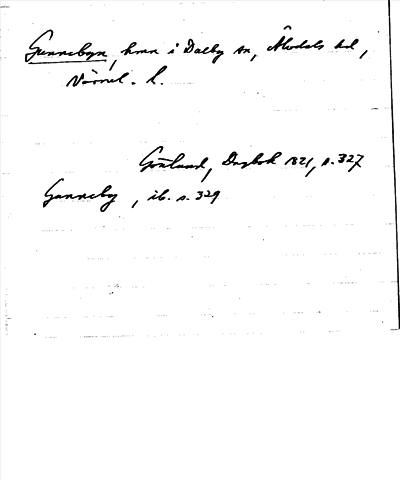 Gunnebyn, hmn i Dalby sn, Älvdals hd,
Värml. l.
Grönlund, Dagbok 1821, s. 327
Gunneby, ib. s. 329